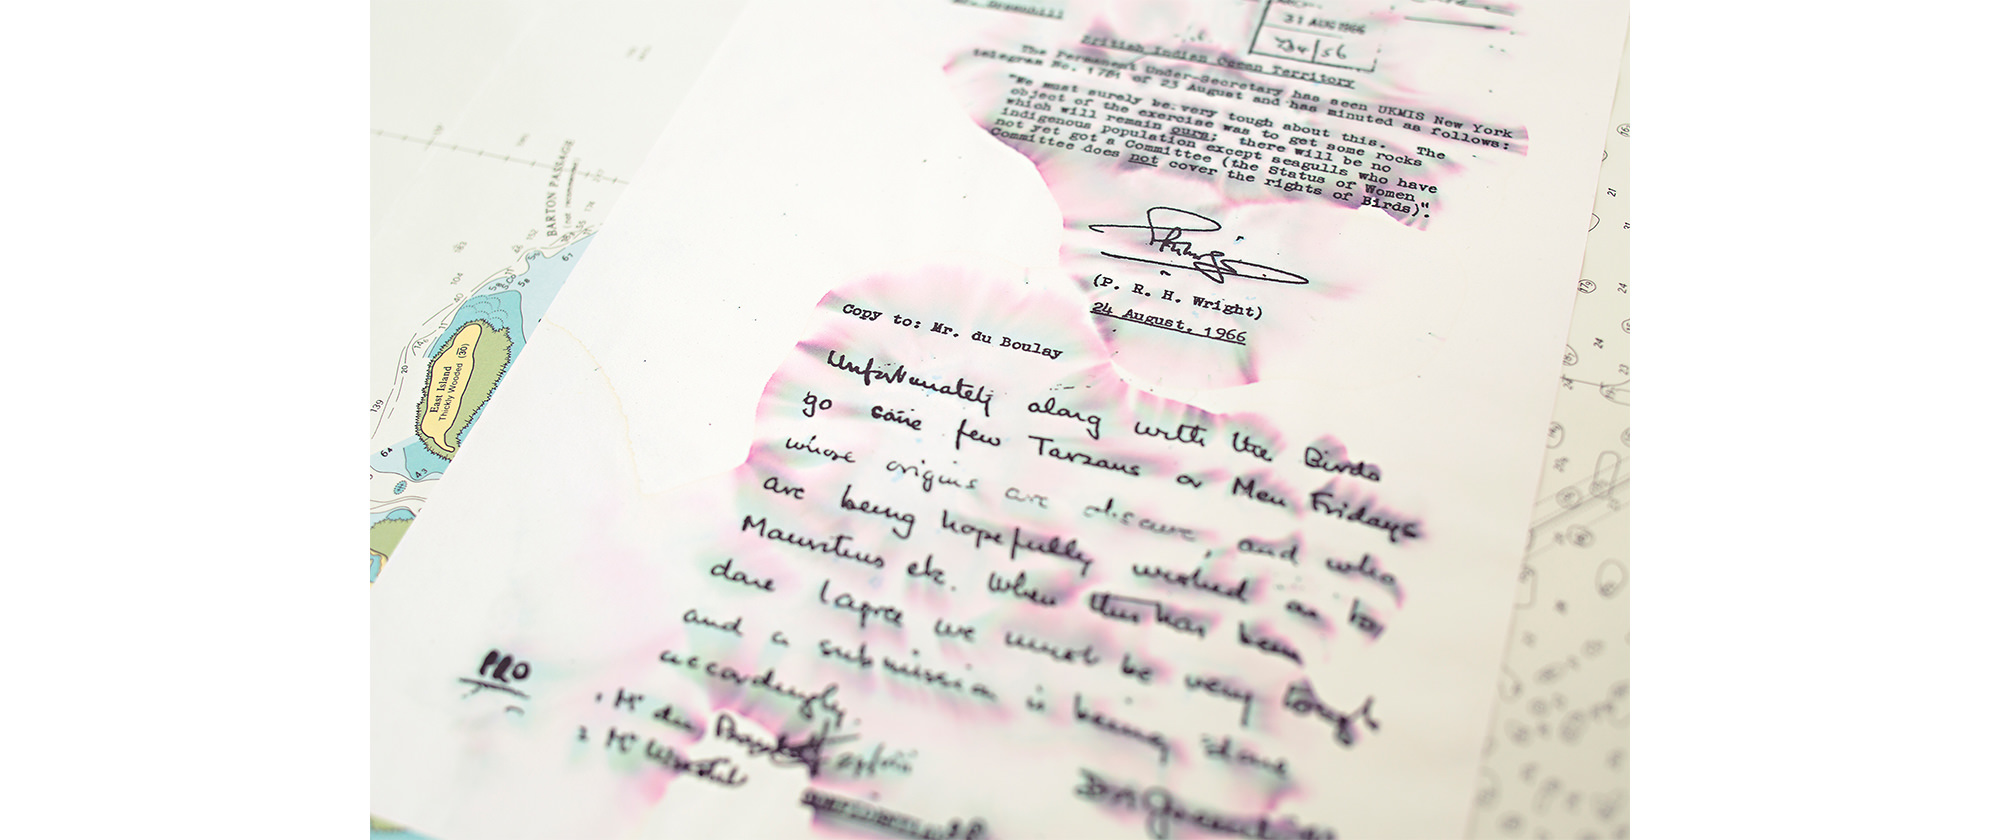 31 AUG 1966
British Indian Ocean Territory
The Permanent Under-Secretary has seen UKMIS New York
telegram No. 1781 of 23 August and has minuted as follows:
"We must surely be very tough about this. The
object of the exercise was to get some rocks
which will remain ours; there will be no
indigenous population except seagulls who have
not yet got a Committee (the Status of Women
Committee does not cover the rights of Birds)".
(P. R. H. Wright)
24 August, 1966
Copy to: Mr. du Boulay
Unfortunately along with the Birds
go some few Tarzans or Men Fridays
whose origins are obscure, and who
are being hopefully wished on to
Mauritius etc. When this has been
done I agree we must be very tough
and a submission is being done
accordingly.
PRO
1 Mr du
2 Mr
BARTON PASSAGE
East Island
Thickly Wooded (30)
20
139
64
43
104
40
67
21
24
24
23